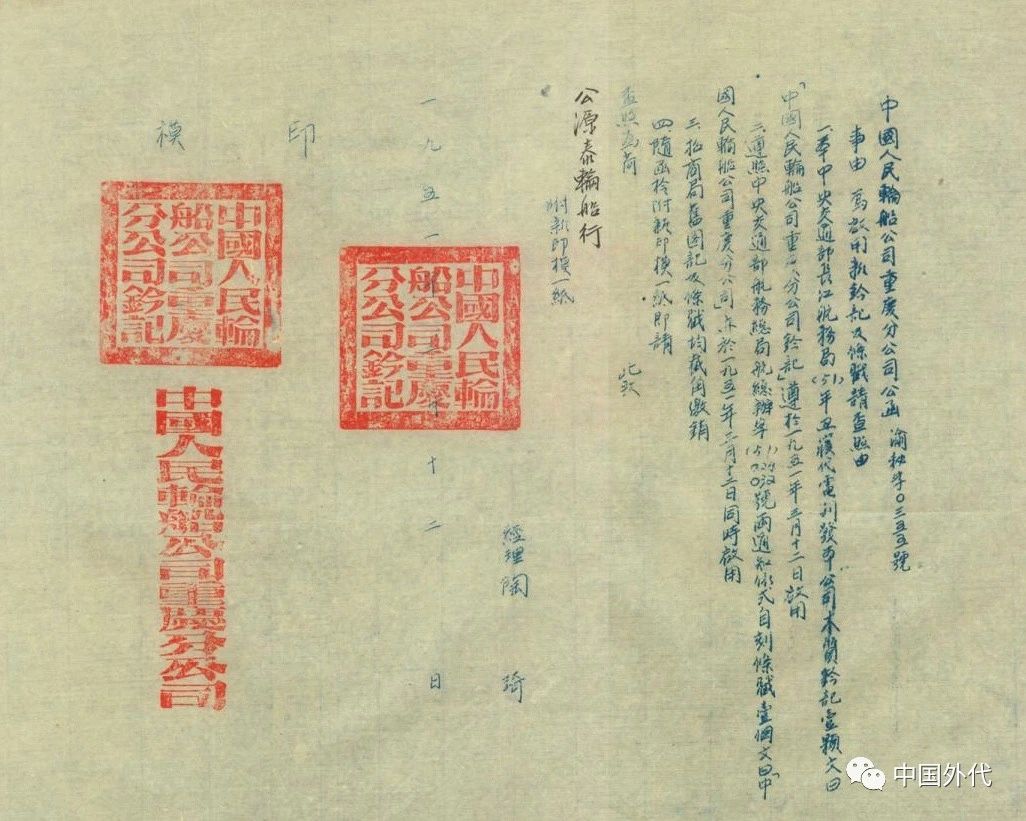 中國人民輪船公司重慶分公司公函 渝秘字〇三三三號
事由 為啟用新鈐記及條戳請查照由
一、奉中央交通部長江航務局(51)年丑 代電刊發本公司木質鈐記壹顆文曰
「中國人民輪船公司重慶分公司鈐記」遵於一九五一年三月十二日啟用
二、遵照中央交通部航務總局航總辦字(51) 號兩通知 式自刻條戳壹個文曰「中
國人民輪船公司重慶分公司」亦於一九五一年三月十二日同時啟用
三、招商局舊圖記及條戳均截角繳銷
四、隨函檢附新印模一紙即請
查照為荷 此致
公源泰輪船行
附新印模一紙
經理陶琦
一九五一年三月十二日
中國人民輪
船公司重慶
分公司鈐記
印模
中國人民輪
船公司重慶
分公司鈐記
中國人民輪船公司重慶分公司
中国外代